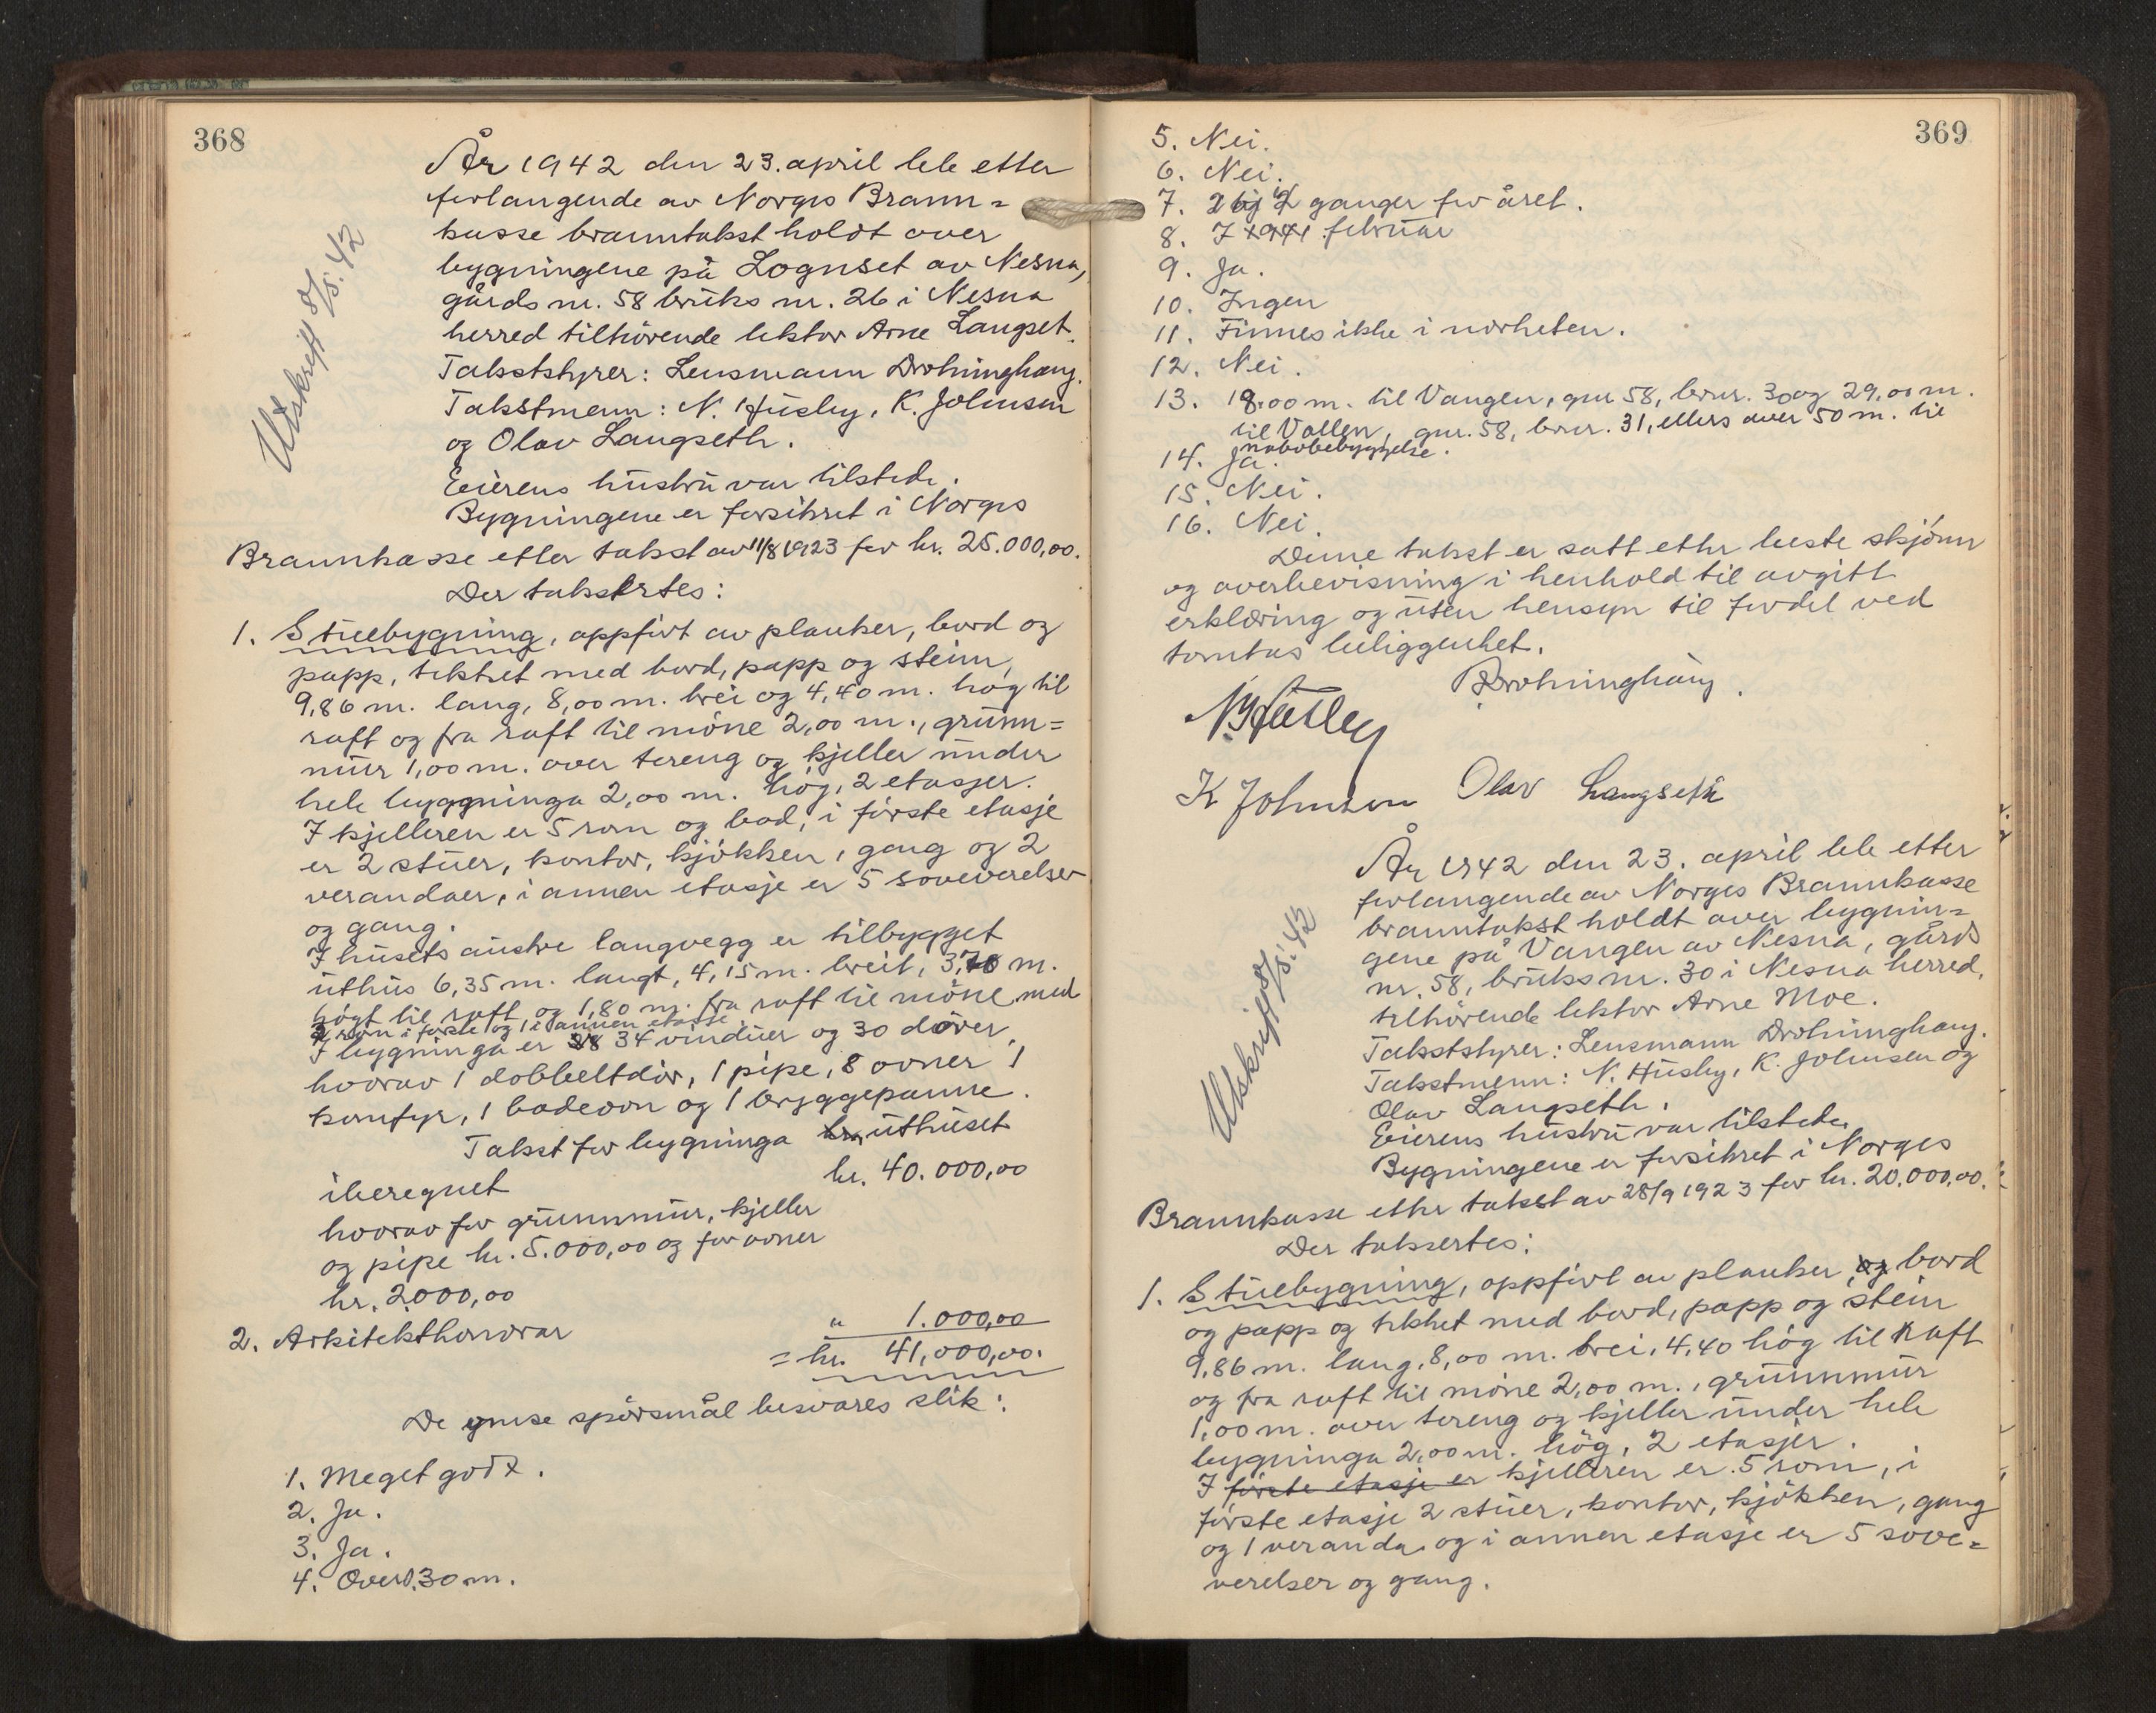 368
Utskrift 8/5. 42
År 1942 den 23. april ble etter
forlangende av Norges Brann=
kasse branntakst holdt over
bygningene på Lognset av Nesna,
gårds nr. 58 bruks nr. 26 i Nesna
herred tilhörende lektor Arne Langset.
Takststyrer: Lensmann Drohninghaug.
Takstmenn: N. Husby, K. Johnsen
og Olav Langseth.
Eierens hustru var tilstede.
Bygningene er forsikret i Norges
Brannkasse etter takst av 11/8 1923 for kr. 25.000,00.
Der takstertes:
1. Stuebygning, oppfört av planker, bord og
papp, tekket med bord, papp og steinn,
9,86 m. lang, 8,00 m. brei og 4,40 m. hög til
raft og fra raft til möne 2,00 m., grunn=
mur 1,00 m. over tereng og kjeller under
hele byggninga 2,00 m. hög, 2 etasjer.
I kjelleren er 5 rom og bad, i förste etasje
er 2 stuer, kontor, kjökken, gang og 2
verandaer, i annen etasje er 5 soveverelser
og gang.
I husets austre langvegg er tilbygget
uthus 6,35 m. langt, 4,15 m. breit, 3,70 m.
högt til raft og 1,80 m. fra raft til möne med
2 rom i förste og 1 i annen etasje.
I bygninga er 28 34 vinduer og 30 dörer,
hvorav 1 dobbeltdör, 1 pipe, 8 ovner 1
komfyr, 1 badeovn og 1 bryggepanne.
Takst for bygninga kr. uthuset
iberegnet kr. 40.000,00
hvorav for grunnmur, kjeller
og pipe kr. 5.000,00 og for ovner
kr. 2000,00
2. Arkitekthonorar " 1.000,00
= kr. 41,000,00.
De ymse spörsmål besvares slik:
1. Meget godt.
2. Ja.
3. Ja.
4. Over 30 m.
369
5. Nei.
6. Nei.
7. 2 ganger for året.
8. I 1941 februar
9. Ja.
10. Ingen
11. Finnes ikke i nærheten.
12. Nei.
13. 18.00 m. til Vangen, gnr 58, brnr. 30 og 29,00 m.
til Vollen, gnr. 58, brnr. 31, ellers over 50 m. til
nabobebyggelse.
14. Ja.
15. Nei.
16. Nei.
Denne takst er satt etter beste skjönn
og overbevisning i henhold til avgitt
erklæring og uten hensyn til fordel ved
tomtas beliggenhet.
Drohninghaug.
N Husby
K Johnsen Olav Langseth
Utskrift 8/5. 42
År 1942 den 23. april ble etter
forlangende av Norges Brannkasse
branntakst holdt over bygnin=
gene på Vangen av Nesna, gårds
nr. 58, bruks nr. 30 i Nesna herred,
tilhörende lektor Arne Moe.
Takststyrer: Lensmann Drohninghaug.
Takstmenn: N. Husby, K. Johnsen og
Olav Langseth.
Eierens hustru var tilstede.
Bygningene er forsikret i Norges
Brannkasse etter takst av 28/9 1923 for kr. 20.000,00.
Der taksertes:
1. Stuebygning, oppfört av planker, og bord
og papp og tekket med bord, papp og stein
9,86 m. lang, 8,00 m. brei, 4,40 hög til raft
og fra raft til möne 2,00 m., grunnmur
1,00 m. over tereng og kjeller under hele
bygninga 2,00 m. hög, 2 etasjer.
I förste etasje er kjelleren er 5 rom, i
förste etasje 2 stuer, kontor, kjökken, gang
og 1 veranda og i annen etasje er 5 sove=
verelser og gang.